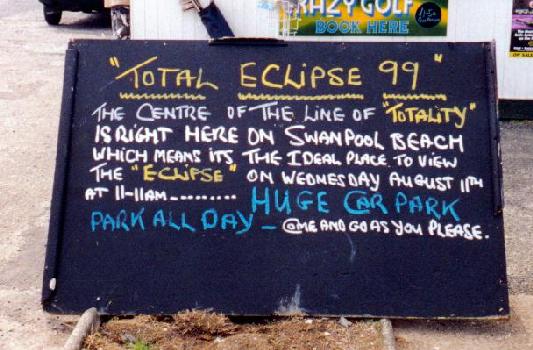 RAZY GOLF
BOOK HERE
"TOTAL ECLIPSE 99"
THE CENTRE OF THE LINE OF "TOTALITY"
IS RIGHT HERE ON SWANPOOL BEACH
WHICH MEANS ITS THE IDEAL PLACE TO VIEW
THE "ECLIPSE" ON WEDNESDAY AUGUST 11TH
AT 11-11AM......... HUGE CAR PARK
PARK ALL DAY - COME AND GO AS YOU PLEASE.